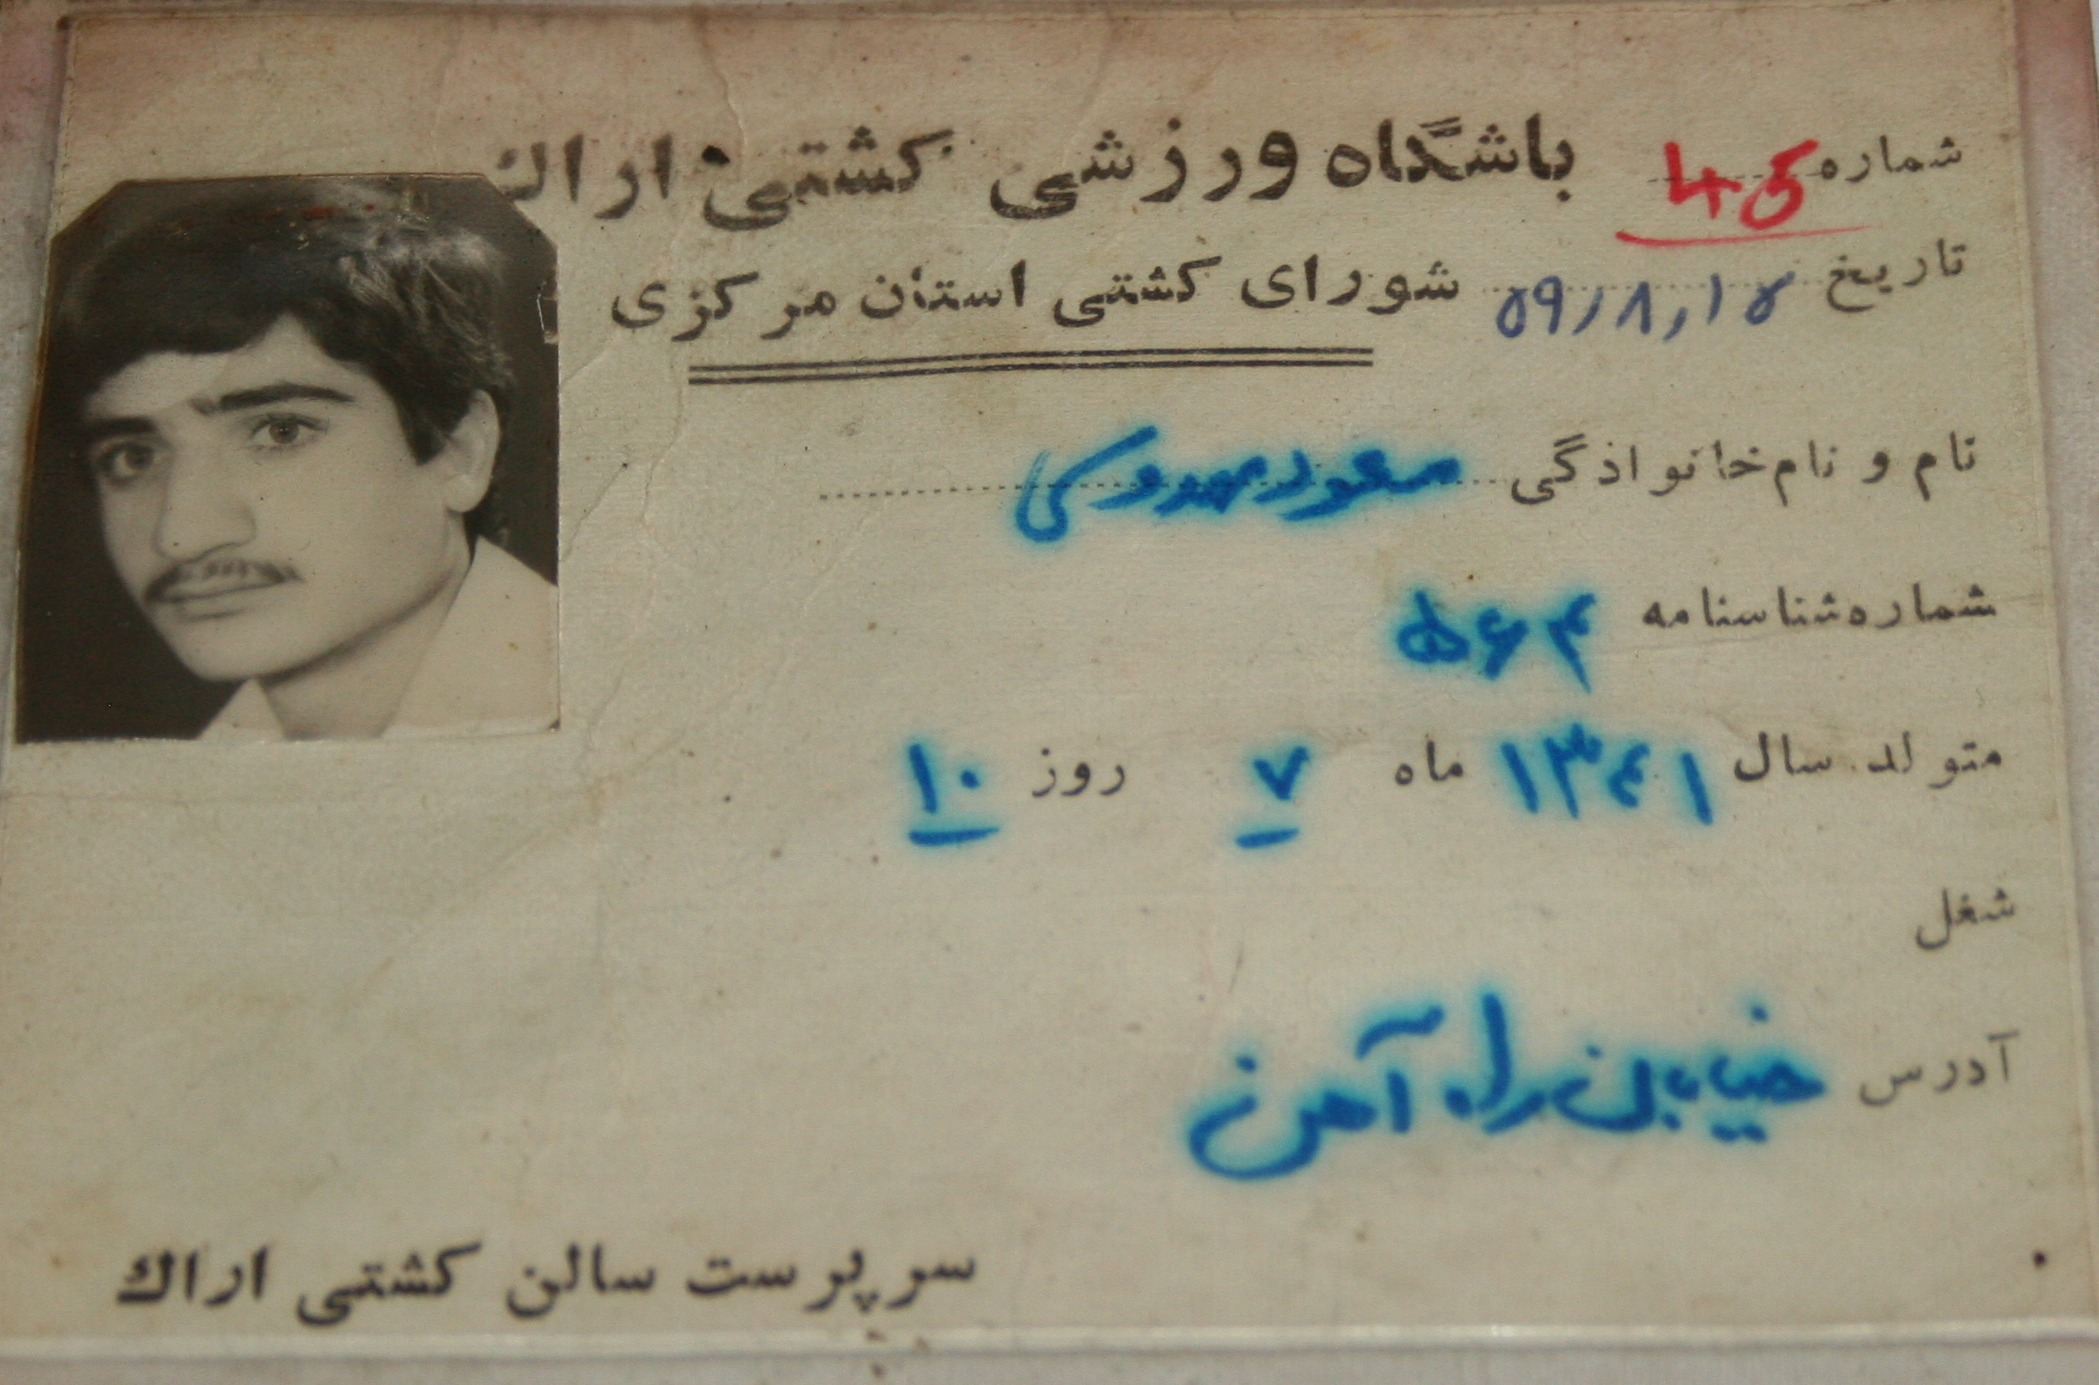 شماره 45 باشگاه ورزشی کشتی اراک
تاریخ ۵۹/۸/۱۵ شورای کشتی استان مرکزی
نام و نام خانوادگی مسعود مهدوی
شماره شناسنامه ۵۶۴
متولد سال ۱۳۴۱ ماه ۷ روز ۱۰
شغل
آدرس خیابان راه آهن
سرپرست سالن کشتی اراک